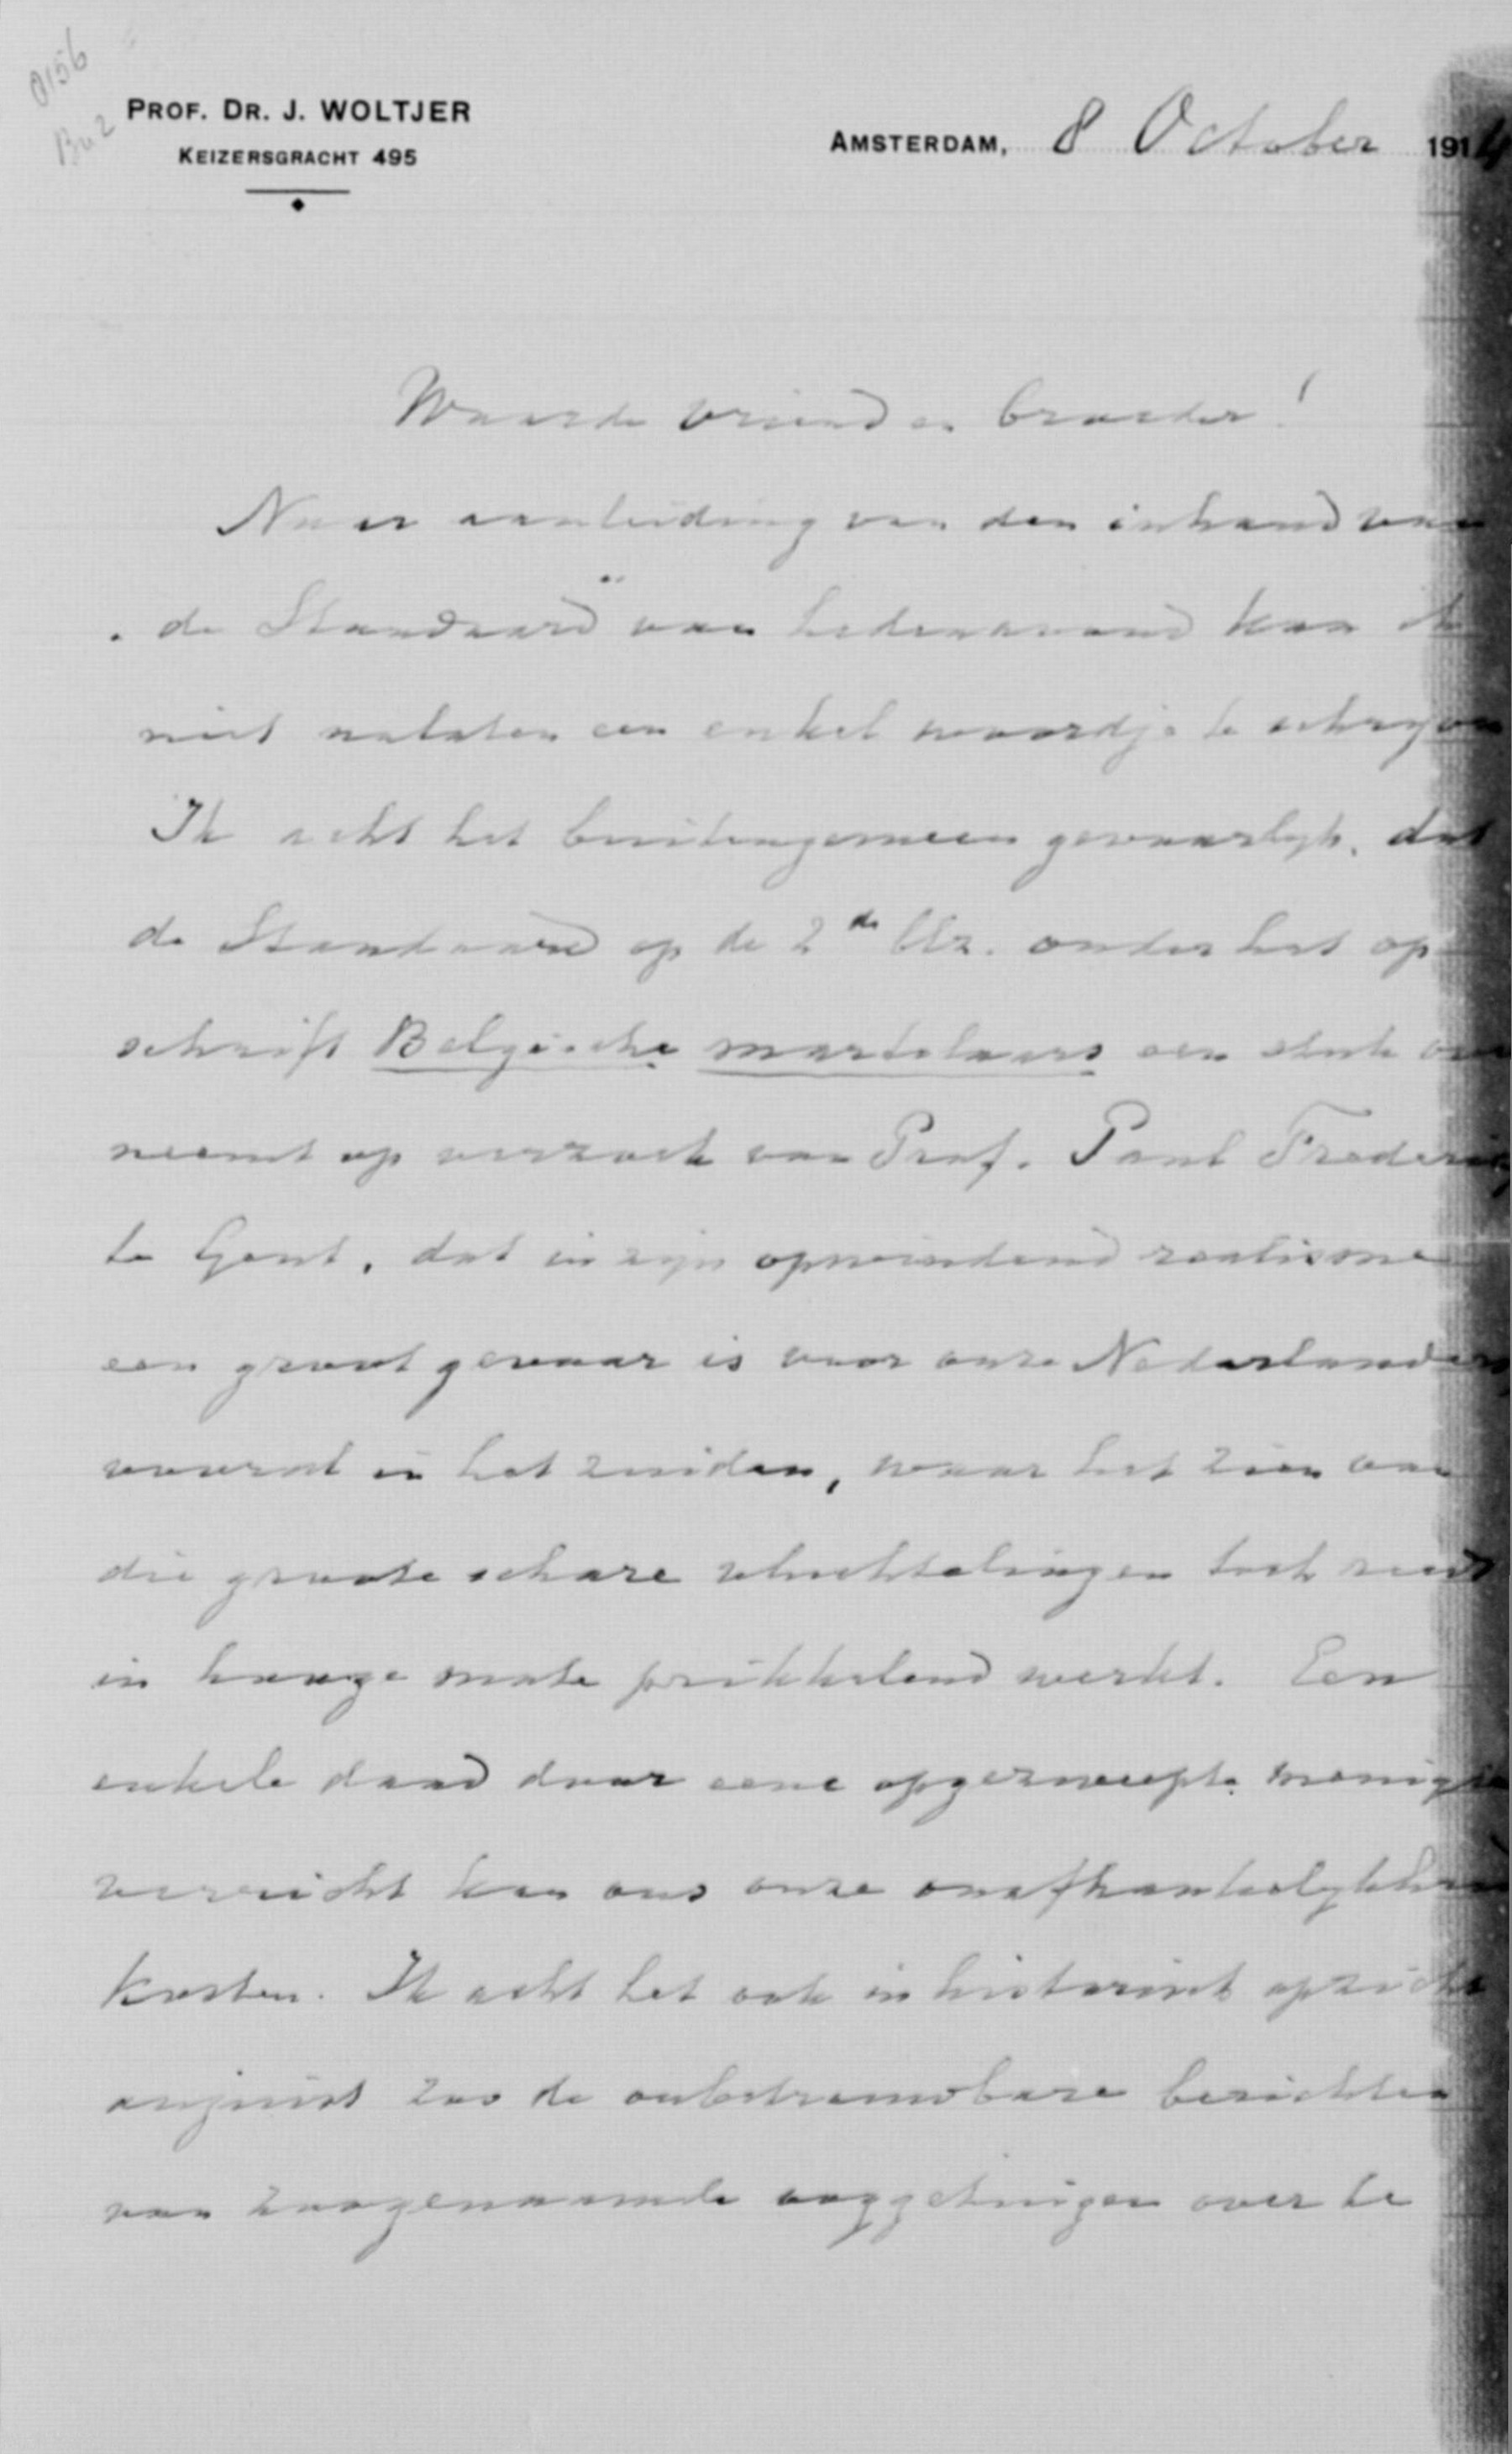 0156
Bu2
PROF. DR. J. WOLTJER
KEIZERSGRACHT 495
AMSTERDAM, 8 October 1914
Waarde vriend en broeder!
Naar aanleiding van den inhoud van
„de Standaard" van hedenavond kan ik
niet nalaten een enkel woordje te schryven
Ik acht het buitengemeen gevaarlyk, dat
de Standaard op de 2de blz. onder het op-
schrift Belgische martelaars een stuk over
neemt op verzoek van Prof. Paul Frederiq
te Gent, dat in zijn opwindend realisme
een groot gevaar is voor onze Nederlanders
vooral in het zuiden, waar het zien van
die groote schare vluchtelingen toch reeds
in hooge mate prikkelend werkt. Een
enkele daad door eene opgezweepte menigte
verricht kan ons onze onafhankelykheid
kosten. Ik acht het ook in historisch opzicht
onjuist zoo de onbetrouwbare berichten
van zoogenaamde ooggetuigen over te